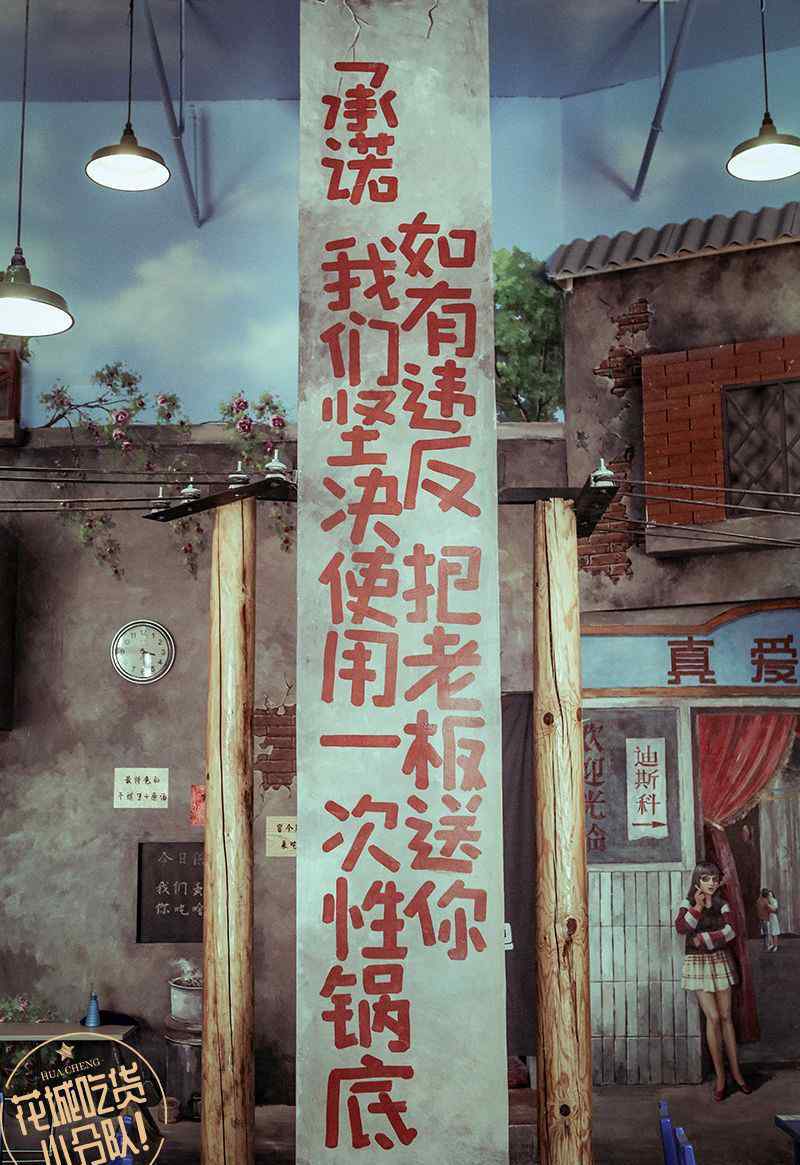 承诺
我们坚决使用一次性锅底
如有违反 把老板送你
真爱
欢迎光临
迪斯科
最佳色和
干碟子+原汤
今日
我们卖
你吃啥
HUA CHENG
花城吃货
小分队!